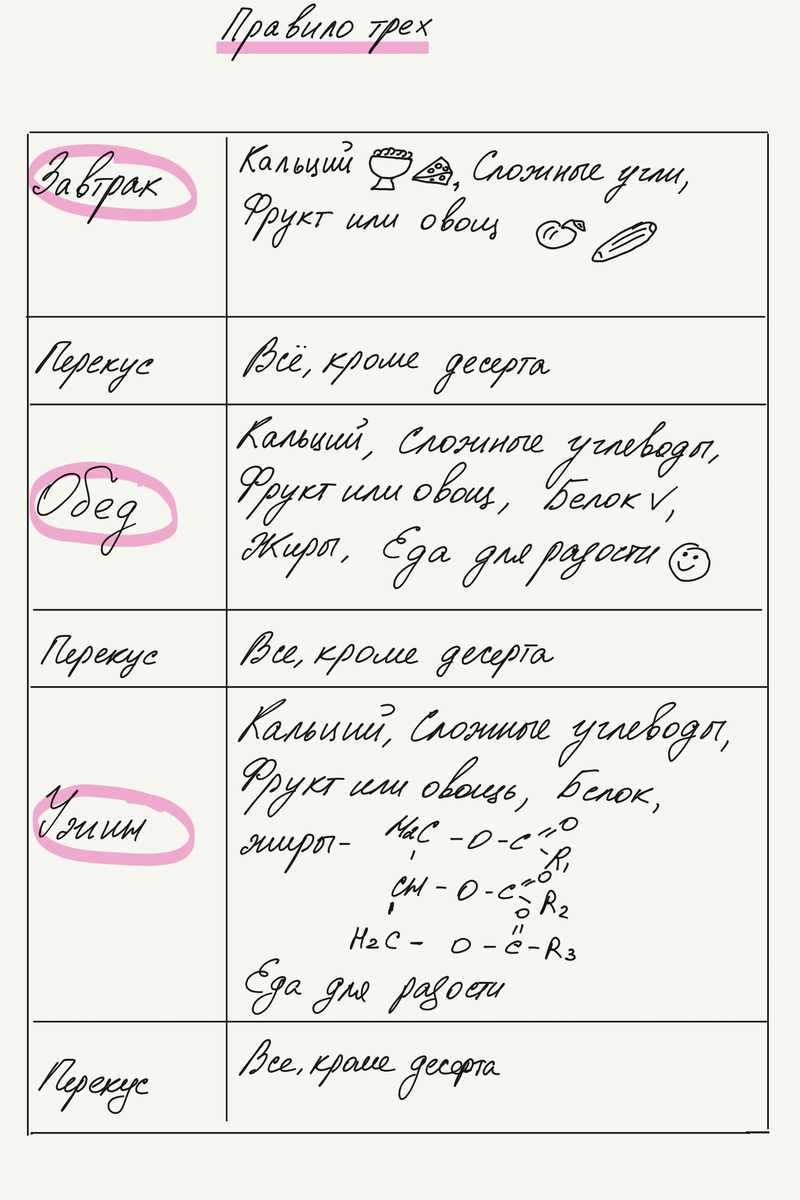 Правило трех
Завтрак
Кальций, Сложные угли,
Фрукт или овощ
Перекус
Всё, кроме десерта
Обед
Кальций, Сложные углеводы,
Фрукт или овощ, Белок ✓,
Жиры, Еда для радости
Перекус
Все, кроме десерта
Ужин
Кальций, Сложные углеводы,
Фрукт или овощь, Белок,
жиры-
H2C - O - C = O
R1
CH - O - C = O
R2
O
H2C - O - C - R3
Еда для радости
Перекус
Все, кроме десерта